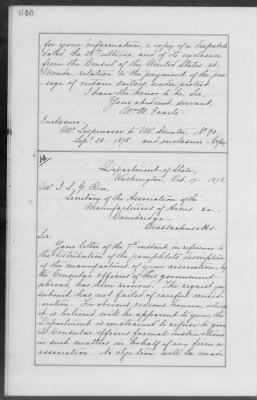 640
for your information, a copy of a despatch
dated the 28th ultimo, and of its enclosure
from the Consul of the United States at
Merida, relation to the payment of the pas-
sage of certain sailors, under protest.
I have the honor to be, Sir,
Your obedient servant,
Wm M. Evarts
Enclosure.
Mr. to Mr. No. 90,
Sept. 28 1878. and enclosure. Copy
Department of State,
Washington. Oct. 17. 1878.
Secretary of the Association of the
Manufacturers of Arms &c
Cambridge
Massachusetts.
Sir:
Your letter of the 7th instant in reference to
the distribution of the pamphlets descriptive
of the manufactures of your association, by
the Consular officers of this government
abroad, has been received. The request you
submit has not failed of careful consid-
eration. For obvious reasons however, which
it is believed will be apparent to you, the
Department is constrained to refuse to give
its Consular officers formal instructions
in such matters in behalf of any firm or
association. No objection will be made